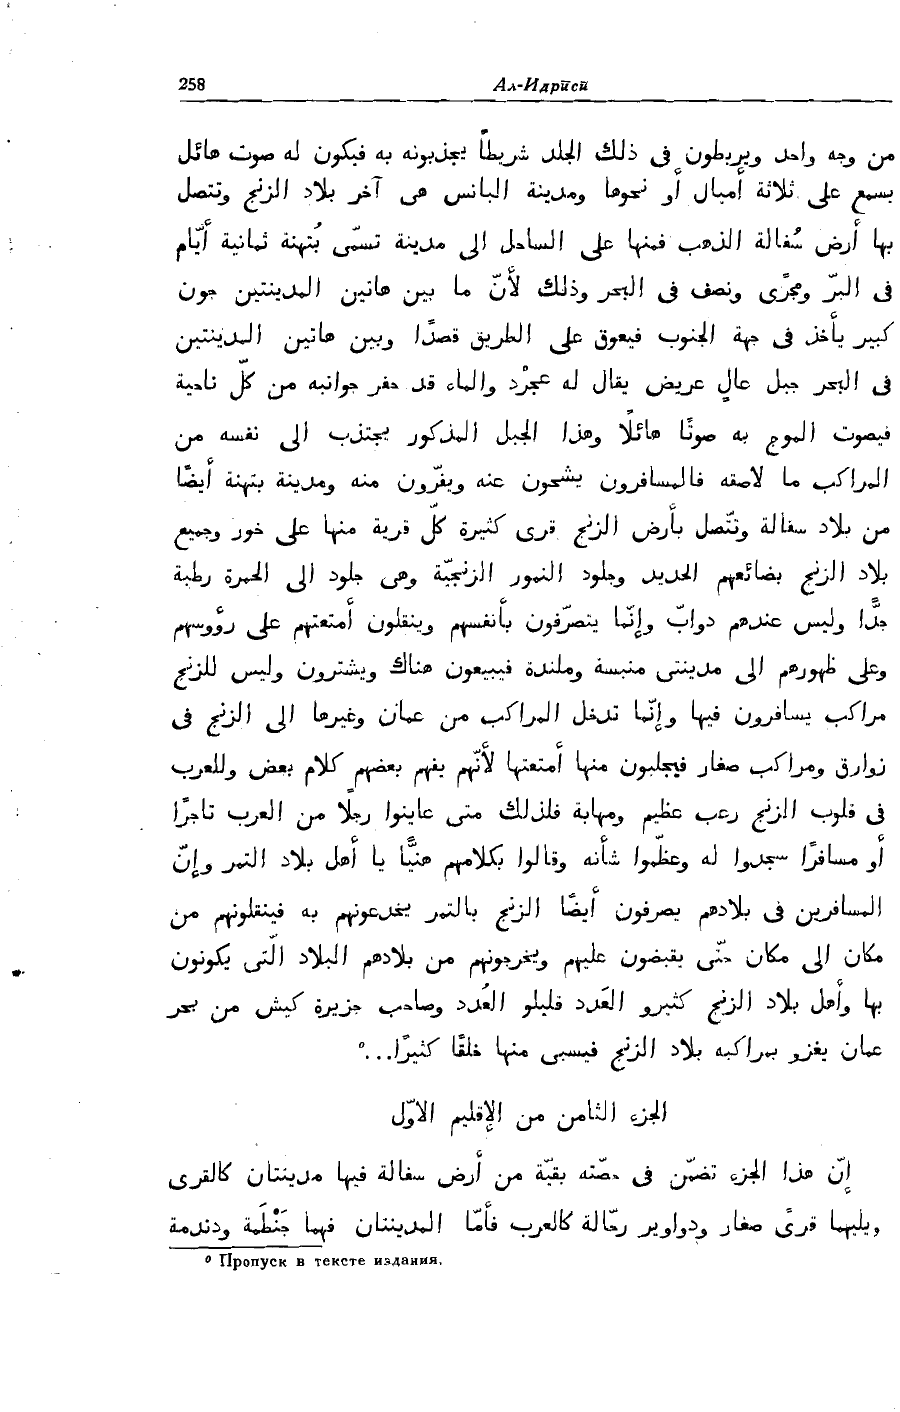 258 Ал-Идрӣсӣ
من وجه واحد ويربطون فى ذلك الجلد شريطاً يجذبونه به فيكون له صوت هائل
يسمع على ثلاثة أميال أو نحوها ومدينة البانس هى آخر بلاد الزنج وتتصل
بها أرض سُفالة الذهب فمنها على الساحل الى مدينة تسمّى بُتهنة ثمانية أيّام
فى البرّ ومجرًى ونصف فى البحر وذلك لأنّ ما بين هاتين المدينتين جون
كبير يأخذ فى جهة الجنوب فيعوق على الطريق قصدًا وبين هاتين المدينتين
فى البحر جبل عالٍ عريض يقال له عجرْد والماء قد حفر جوانبه من كلّ ناحية
فيصوت الموج به صوتًا هائلًا وهذا الجبل المذكور يجتذب الى نفسه من
المراكب ما لاصقه فالمسافرون يتنحون عنه ويفرّون منه ومدينة بتهنة أيضًا
من بلاد سفالة وتتّصل بأرض الزنج قرى كثيرة كلّ قرية منها على خور وجميع
بلاد الزنج بضائعهم الحديد وجلود النمور الزنجيّة وهى جلود الى الحمرة رطبة
جدًّا وليس عندهم دوابّ وإنّما يتصرّفون بأنفسهم وينقلون أمتعتهم على رؤوسهم
وعلى ظهورهم الى مدينتى منبسة وملندة فيبيعون هناك ويشترون وليس للزنج
مراكب يسافرون فيها وإنّما تدخل المراكب من عمان وغيرها الى الزنج فى
زوارق ومراكب صغار فيجلبون منها أمتعتها لأنّهم يفهم بعضهم كلام بعض وللعرب
فى قلوب الزنج رعب عظيم ومهابة فلذلك متى عاينوا رجلًا من العرب تاجرًا
أو مسافرًا سجدوا له وعظّموا شأنه وقالوا بكلامهم هنيًّا يا أهل بلاد التمر وإنّ
المسافرين فى بلادهم يصرفون أيضًا الزنج بالتمر يخدعونهم به فينقلونهم من
مكان الى مكان حتّى يقبضون عليهم ويخرجونهم من بلادهم البلاد الّتى يكونون
بها وأهل بلاد الزنج كثيرو العَدد قليلو العُدد وصاحب جزيرة كيش من بحر
عمان يغزو بمراكبه بلاد الزنج فيسبى منها خلقًا كثيرًا...⁰
الجزء الثامن من الإقليم الاوّل
إنّ هذا الجزء تضمّن فى حصّته بقيّة من أرض سفالة فيها مدينتان كالقرى
ويليهما قرىً صغار ودواوير رحّالة كالعرب فأمّا المدينتان فهما جَنْطَمة ودندمة
⁰ Пропуск в тексте издания.